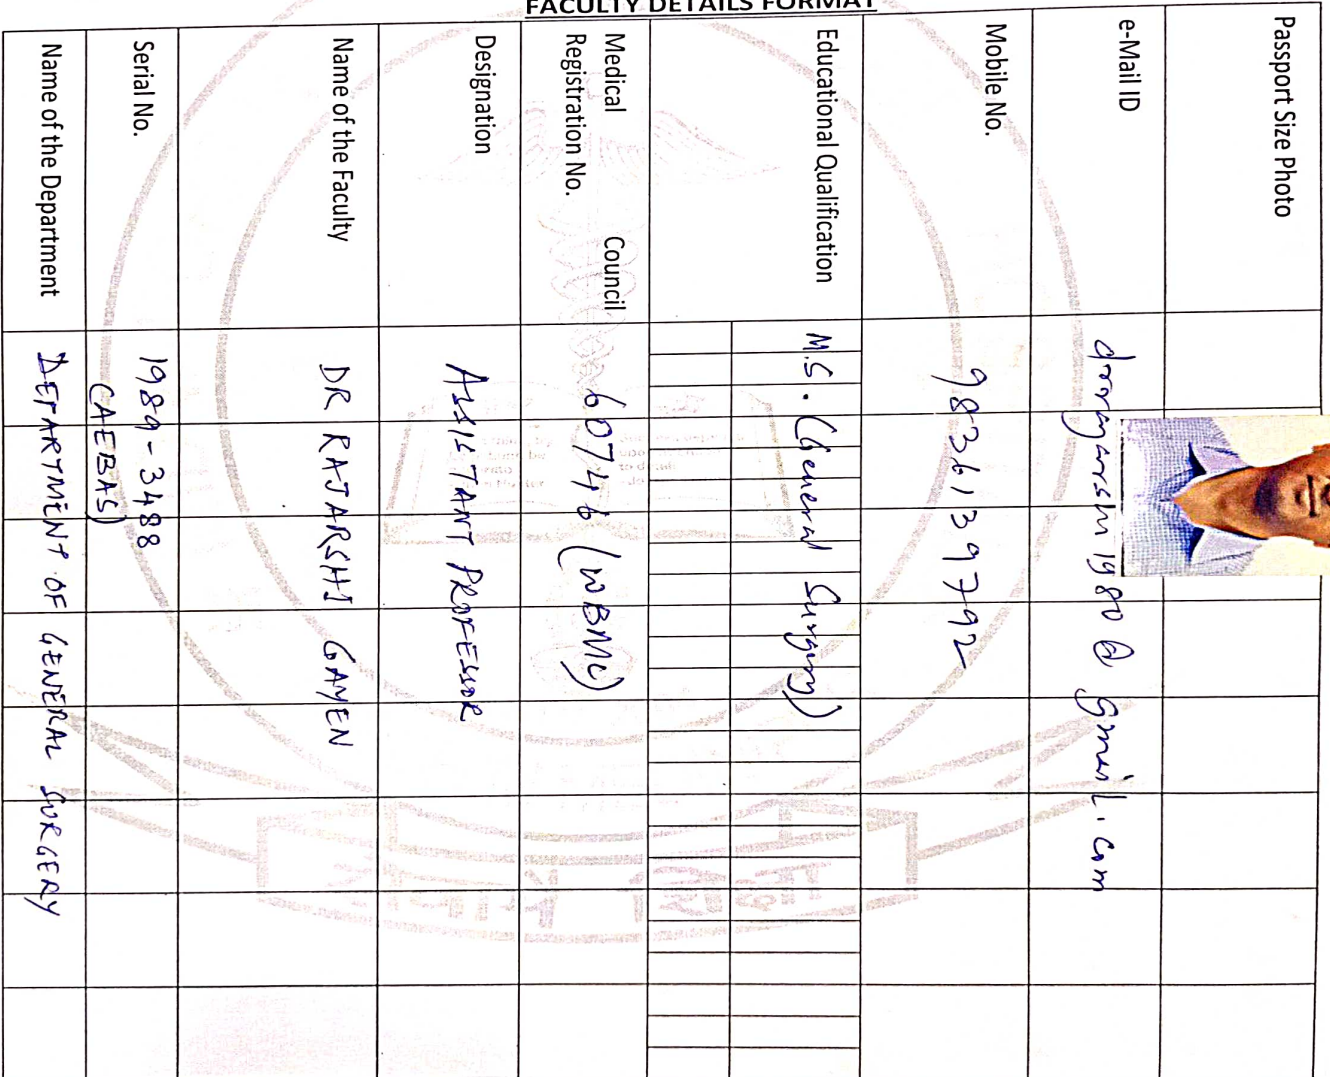 FACULTY DETAILS FORMAT
Name of the Department
DEPARTMENT OF GENERAL SURGERY
Serial No.
1989-3488
(AEBAS)
Name of the Faculty
DR RAJARSHI GAYEN
Designation
ASSISTANT PROFESSOR
Medical Council
Registration No.
60746 (WBMC)
Educational Qualification
M.S. (General Surgery)
Mobile No.
9836139792
e-Mail ID
1980@gmail.com
Passport Size Photo